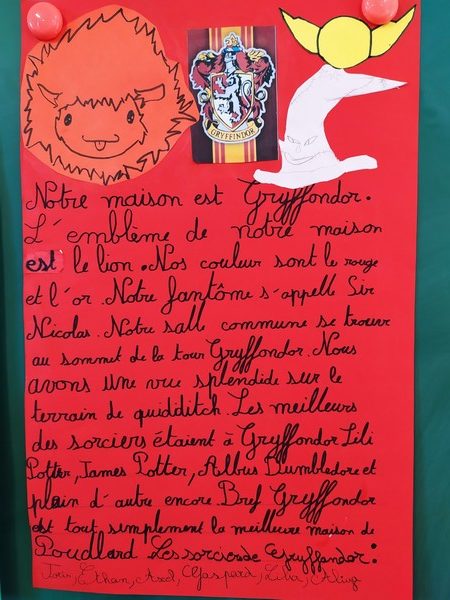 GRYFFINDOR
Notre maison est Gryffondor.
L'emblème de notre maison
est le lion. Nos couleur sont le rouge
et l'or. Notre fantôme s'appelle Sir
Nicolas. Notre salle commune se trouve
au sommet de la tour Gryffondor. Nous
avons une vue splendide sur le
terrain de quidditch. Les meilleurs
des sorciers étaient à Gryffondor Lili
Potter, James Potter, Albus Dumbledore et
plein d'autre encore. Bref Gryffondor
est tout simplement la meilleure maison de
Poudlard. Les sorciers de Gryffondor :
Ethan, Axel, Gaspard,